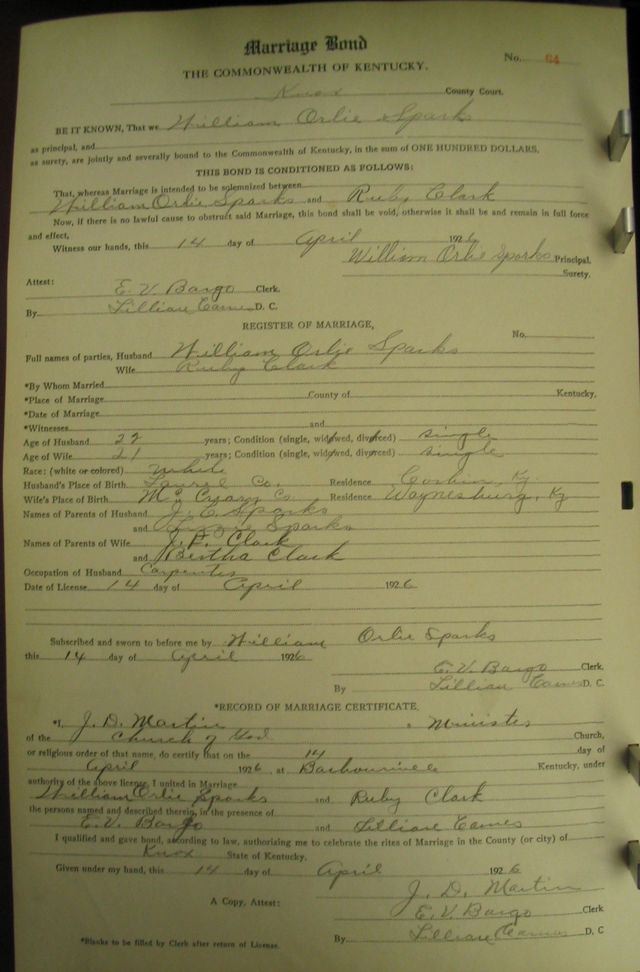 Marriage Bond
THE COMMONWEALTH OF KENTUCKY.
No. 64
Knox County Court.
BE IT KNOWN, That we William Orlie Sparks
as principal, and
as surety, are jointly and severally bound to the Commonwealth of Kentucky, in the sum of ONE HUNDRED DOLLARS.
THIS BOND IS CONDITIONED AS FOLLOWS:
That, whereas Marriage is intended to be solemnized between
William Orlie Sparks and Ruby Clark
Now, if there is no lawful cause to obstruct said Marriage, this bond shall be void, otherwise it shall be and remain in full force
and effect,
Witness our hands, this 14 day of April 1926
William Orlie Sparks Principal,
Surety.
Attest:
E. V. Bargo Clerk.
By Lillian Eames D. C.
REGISTER OF MARRIAGE,
No.
Full names of parties, Husband William Orlie Sparks
Wife Ruby Clark
*By Whom Married
*Place of Marriage County of Kentucky.
*Date of Marriage
*Witnesses and
Age of Husband 22 years; Condition (single, widowed, divorced) single
Age of Wife 21 years; Condition (single, widowed, divorced) single
Race: (white or colored) white
Husband's Place of Birth Laurel Co. Residence Corbin, Ky.
Wife's Place of Birth McCreary Co. Residence Waynesburg, Ky
Names of Parents of Husband J. C. Sparks
and Sparks
Names of Parents of Wife Clark
and Bertha Clark
Occupation of Husband Carpenter
Date of License 14 day of April 1926
Subscribed and sworn to before me by William Orlie Sparks
this 14 day of April 1926
E. V. Bargo Clerk.
By Lillian Eames D. C.
*RECORD OF MARRIAGE CERTIFICATE.
*I, J. D. Martin a Minister
of the Church of God Church,
or religious order of that name, do certify that on the 14 day of
April 1926, at Barbourville Kentucky, under
authority of the above license, I united in Marriage
William Orlie Sparks and Ruby Clark
the persons named and described therein, in the presence of
E. V. Bargo and Lillian Eames
I qualified and gave bond, according to law, authorizing me to celebrate the rites of Marriage in the County (or city) of
Knox State of Kentucky.
Given under my hand, this 14 day of April 1926
J. D. Martin
A Copy, Attest: E. V. Bargo Clerk
By Lillian Eames D. C
*Blanks to be filled by Clerk after return of License.